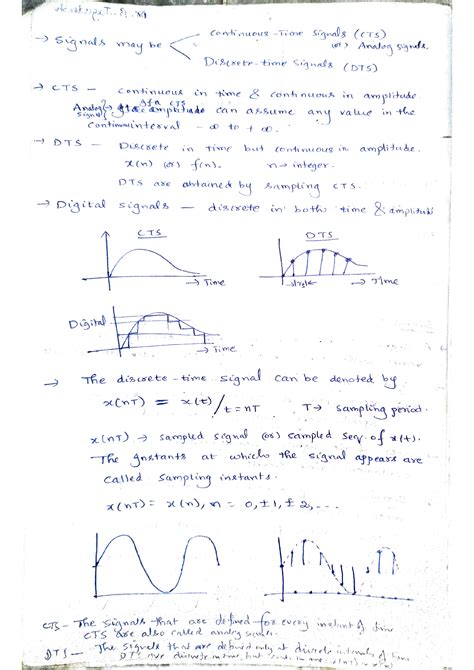 → Signals may be
Continuous-Time Signals (CTS)
(or) Analog signals.
Discrete-time Signals (DTS)
→ CTS - continuous in time & continuous in amplitude.
Analog signal → amplitude of a CTS can assume any value in the
Continuous interval - ∞ to + ∞.
→ DTS - Discrete in time but continuous in amplitude.
x(n) (or) f(n). n → integer.
DTS are obtained by sampling CTS.
→ Digital signals - discrete in both time & amplitude
CTS
DTS
→ Time
→ Time
Digital
→ Time
→ The discrete-time signal can be denoted by
x(nT) = x(t)/t=nT T→ sampling period.
x(nT) → sampled signal (or) sampled seq. of x(t).
The Instants at which the signal appears are
called sampling instants.
x(nT) = x(n), n = 0, ±1, ± 2, ...
CTS - The signals that are defined for every instant of time
CTS are also called analog signals.
DTS - The signals that are defined only at discrete intervals of time
DTS are discrete in time, but continuous in